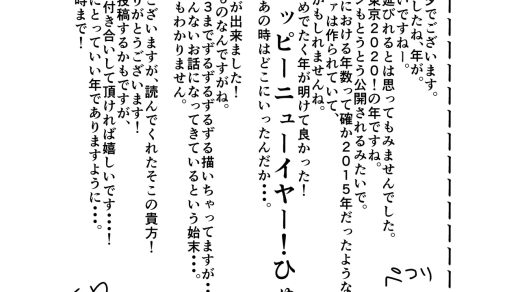 ーーーーーーーーーーーー
でございます。
したね、年が。
いですねー。
延びれるとは思ってもみませんでした。
東京2020!の年ですね。
もとうとう公開されるみたいで。
における年数って確か2015年だったような
ァは作られていて、
がもしれませんね。
めでたく年が明けて良かった!
ッピーニューイヤー!ひ
あの時はどこにいったんだか…。
が出来ました!
のなんですがね。
3までずるずるずるずる描いちゃってますが…
んないお話になってきているという始末…。
もわかりません。
ございますが、読んでくれたそこの貴方!
りがとうございます!
投稿するかもですが、
付き合いして頂ければ嬉しいです!…!
にとっていい年でありますように…。
時まで!